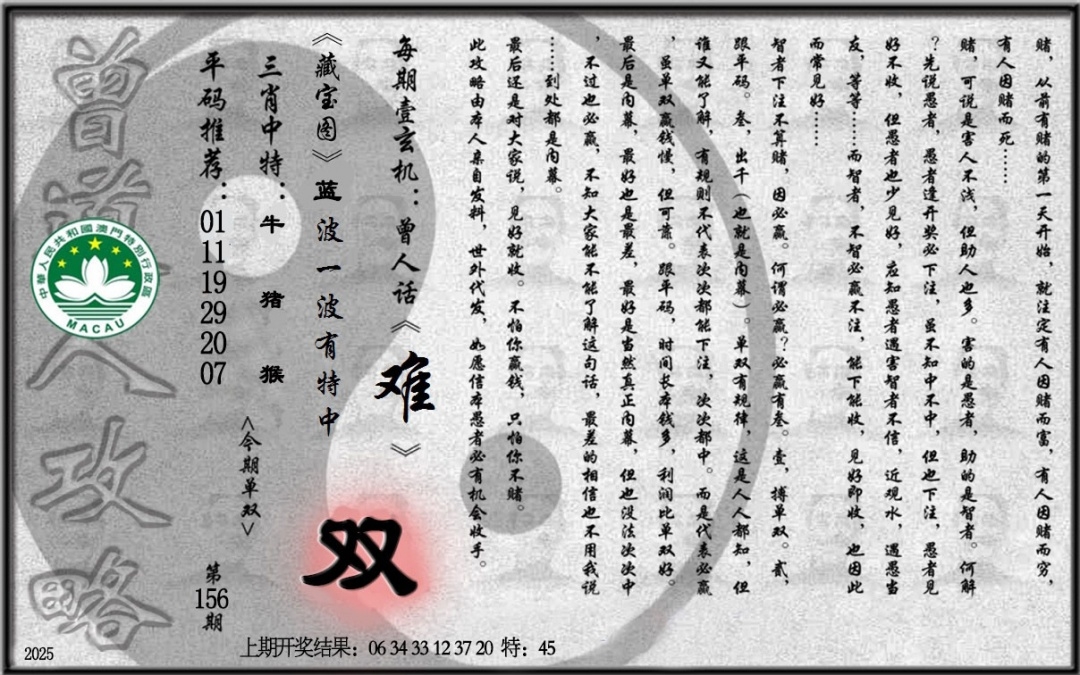 赌，从前有赌的第一天开始，就注定有人因赌而富，有人因赌而穷，
有人因赌而死……
赌，可说是害人不浅，但助人也多。害的是愚者，助的是智者。何解
？先说愚者，愚者逢开奖必下注，虽不知中不中，但也下注，愚者见
好不收，但愚者也少见好，应知愚者遇害智者不信，近观水，遇愚当
友，等等……而智者，不智必赢不注，能下能收，见好即收，也因此
而常见好……
智者下注不算赌，因必赢。何谓必赢？必赢有叁。壹，搏单双。贰，
跟平码。叁，出千（也就是内幕）。单双有规律，这是人人都知，但
谁又能了解，有规则不代表次次都能下注，次次都中。而是代表必赢
，虽单双赢钱慢，但可靠。跟平码，时间长本钱多，利润比单双好。
最后是内幕，最好也是最差，最好是当然真正内幕，但也没法次次中
，不过也必赢，不知大家能不能了解这句话，最差的相信也不用我说
……到处都是内幕。
最后还是对大家说，见好就收。不怕你赢钱，只怕你不赌。
此攻略由本人亲自发料，世外代发，如愿信本愚者必有机会收手。
每期壹玄机：曾人话《难》
《藏宝图》蓝波一波有特中
双
三肖中特：牛 猪 猴
<今期单双>
平码推荐：01 11 19 29 20 07
第156期
曾道人攻略
中華人民共和國澳門特別行政區
MACAU
上期开奖结果：06 34 33 12 37 20 特：45
2025